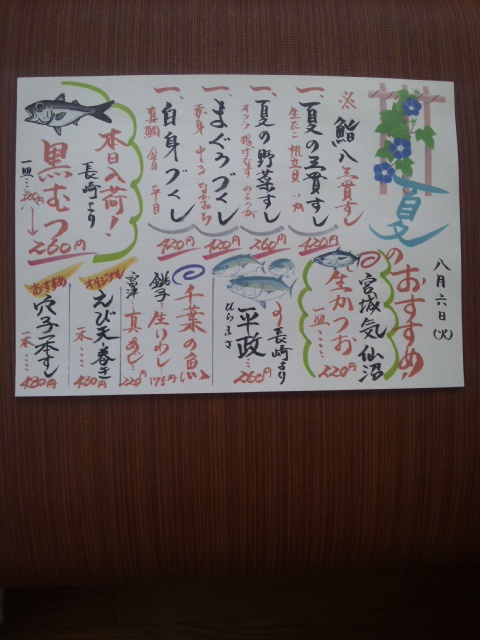 八月六日(火)
夏のおすすめ!
※鮨八三貫すし
一、夏の三貫すし
生だこ 帆立貝 いか
420円
一、夏の野菜すし
オクラ 揚げなす みょうが
260円
一、まぐろづくし
赤身 中とろ
420円
一、白身づくし
真鯛 平目
420円
本日入荷!
長崎より
黒むつ
一皿…
→260円
宮城気仙沼
生かつお
一皿……220円
長崎より
平政
ひらまさ
…260円
千葉の魚
銚子…生いわし
175円
富津…真あじ…
220円
オリジナル
えび天巻き
一本……480円
おすすめ
穴子一本すし
一本……480円